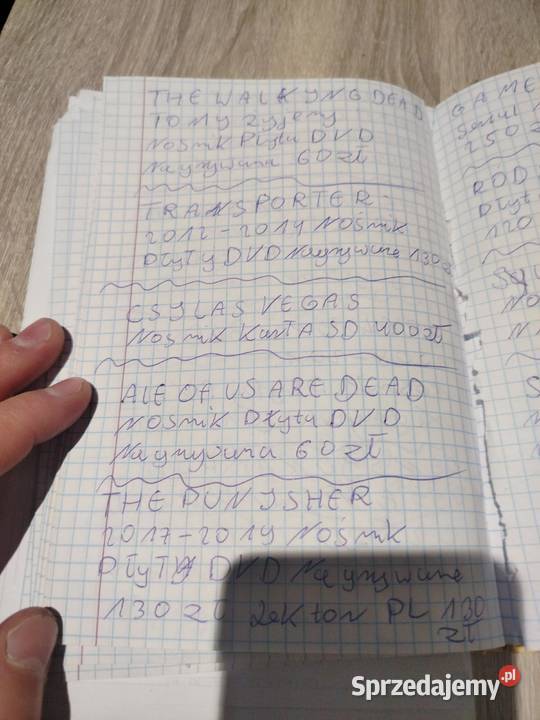 THE WALKYNG DEAD
TO MY Zyjemy
Nośnik Płyta DVD
Nagrywana 60 zł
TRANSPORTER
2012-2014 Nośnik
Płyty DVD Nagrywane 130 zł
CSY LAS VEGAS
Nośnik Karta SD 400 zł
ALE OF US ARE DEAD
Nośnik Płyta DVD
Nagrywana 60 zł
THE PUNYSHER
2017-2019 Nośnik
Płyty DVD Nagrywane
130 zł Lektor PL 130
zł
GAME
Serial
250
ROD
Płyt
120
Sprzedajemy.pl